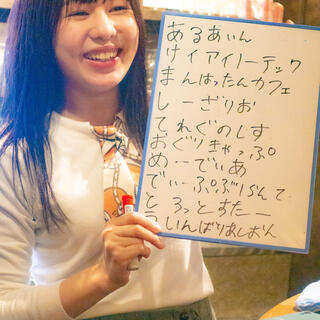 あるあいん
けイアイノーテック
まんはったんカフェ
しーざりお
てれぐのしす
おぐりきゃっぷ
めーでぃあ
でぃーぷぶりらんて
とろっとすたー
ういんばりあしおん